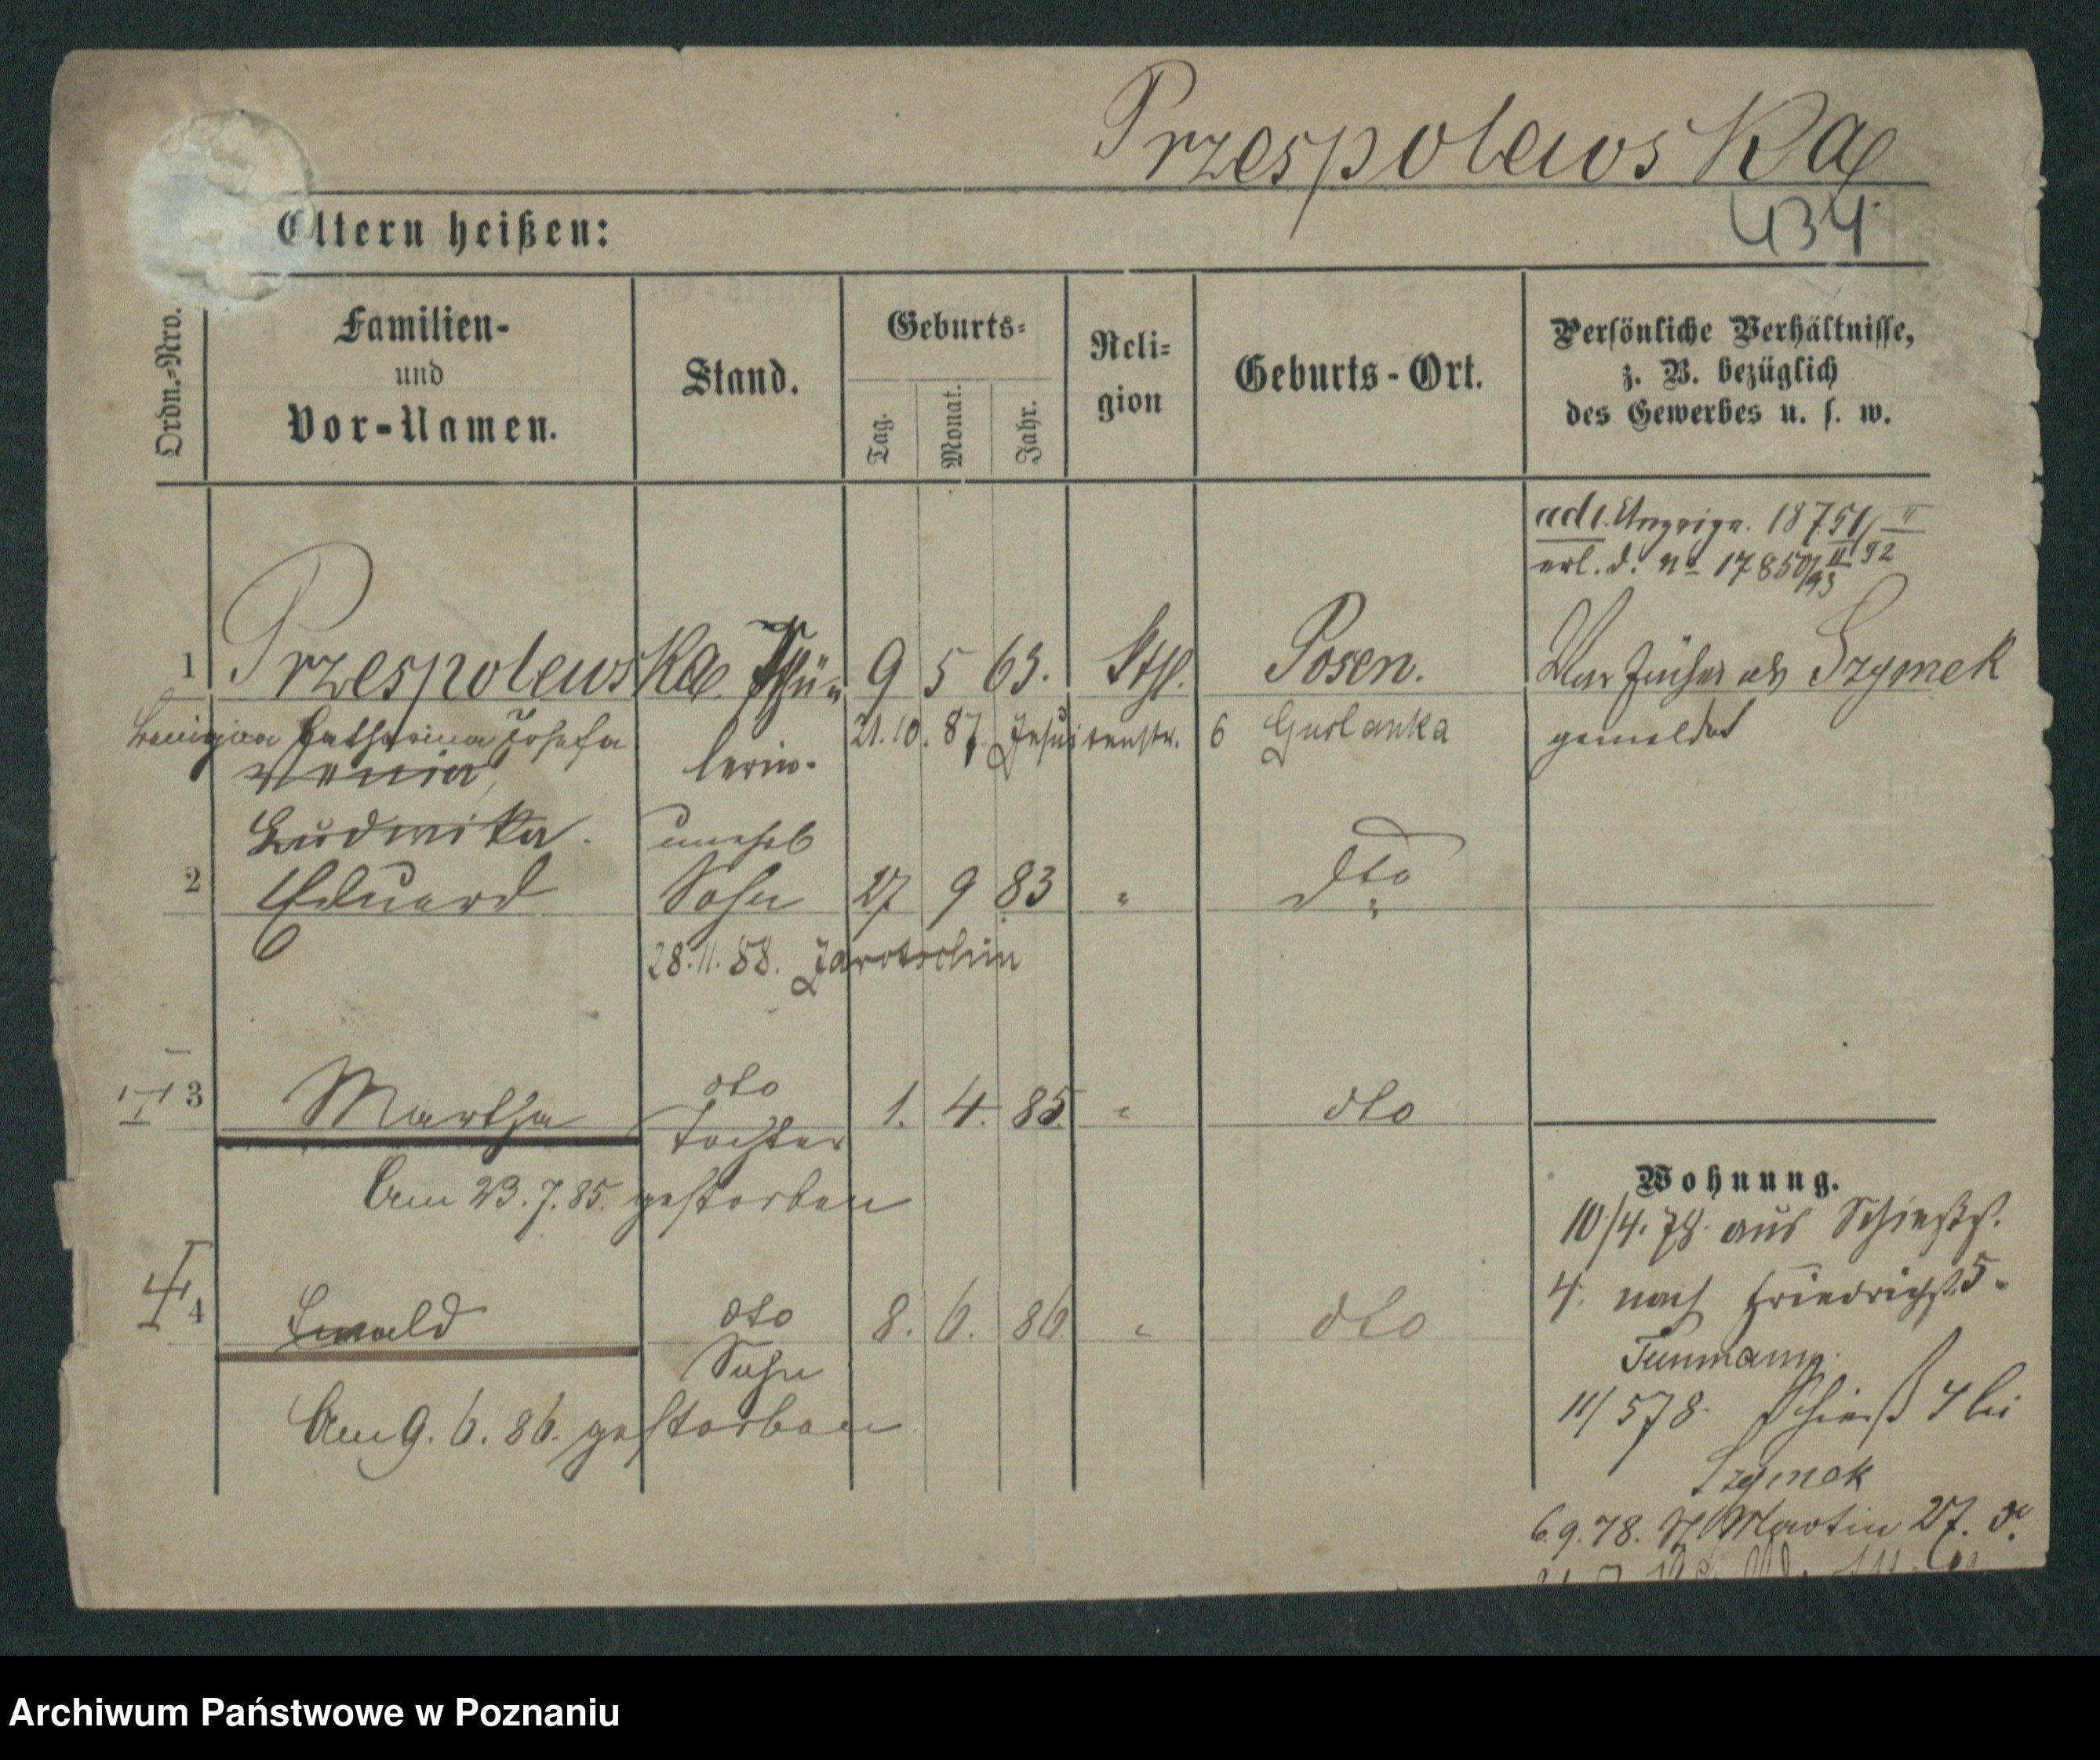 Przespolewska
434.
Eltern heißen:
Ordn.-Nro.
Familien-
und
Vor-Namen.
Stand.
Geburts-
Tag.
Monat.
Jahr.
Reli-
gion
Geburts-Ort.
Persönliche Verhältnisse,
z. B. bezüglich
des Gewerbes u. s. w.
ad 1. Anzeige. 18751/II 92
erl. d. No 17850/II 93
1 Przespolewska Schü- 9 5 63. Kth. Posen. War früher als Szymek
Catharina Josefa lerin. 21.10.87. Jesuitenstr. 6 gemeldet
Ludwika. unehel
2 Eduard Sohn 27 9 83 " dto
28.11.88. Jarotschin
3 Martha dto 1. 4. 85. " dto
Tochter
Am 23.7.85. gestorben
Wohnung.
10/4.78. aus Schießst.
4. nach Friedrichst 5.
4 Ewald dto 8. 6. 86. " dto
Sohn
Am 9.6.86. gestorben
11/578. Schießst 4 bei
Szymek
6.9.78. St Martin 27.
Archiwum Państwowe w Poznaniu